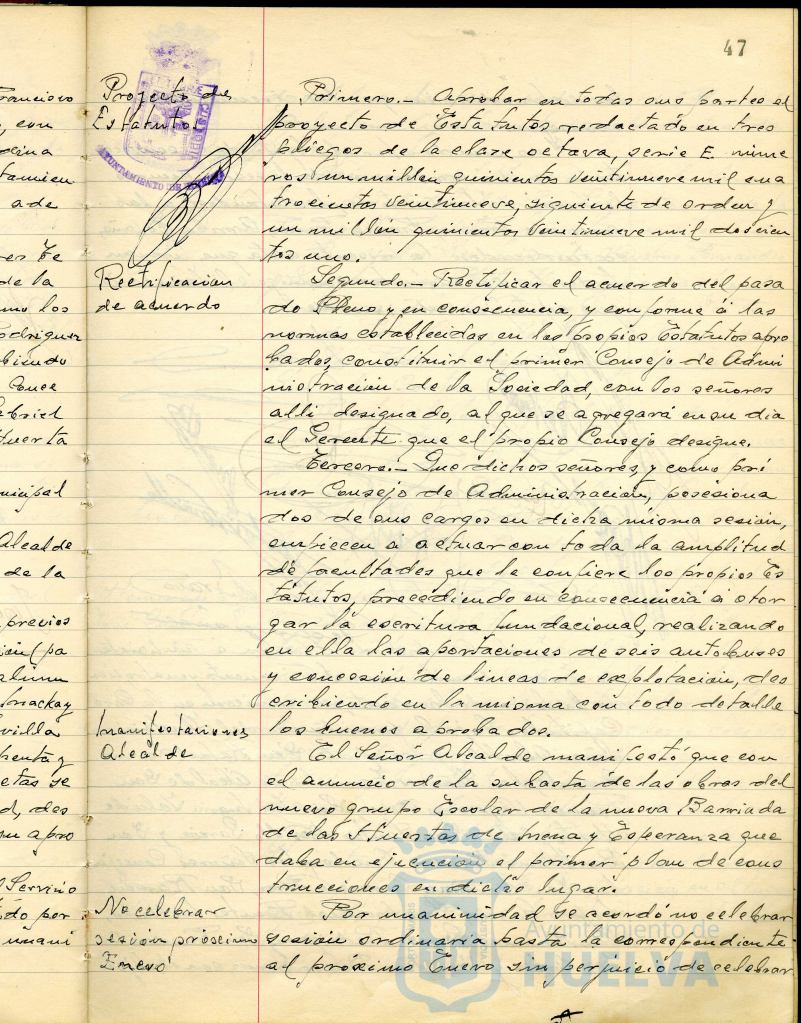 47
Proyecto de
Estatutos
AYUNTAMIENTO DE HUELVA
Primero.- Aprobar en todas sus partes el
proyecto de Estatutos redactado en tres
pliegos de la clase octava, serie E. núme
ros un millón quinientos veintinueve mil cua
trocientos veintinueve, siguiente de orden y
un millón quinientos veintinueve mil doscien
tos uno.
Rectificación
de acuerdo
Segundo.- Rectificar el acuerdo del pasa
do Pleno y en consecuencia, y conforme á las
normas establecidas en los propios Estatutos apro
bados, constituir el primer Consejo de Admi
nistración de la Sociedad, con los señores
alli designado, al que se agregará en su dia
el Gerente que el propio Consejo designe.
Tercero.- Que dichos señores, y como pri
mer Consejo de Administración, posesiona
dos de sus cargos en dicha misma sesión,
empiecen á actuar con toda la amplitud
de facultades que le confiere los propios Es
tatutos, procediendo en consecuencia á otor
gar la escritura fundacional, realizando
en ella las aportaciones de seis autobuses
y concesión de lineas de explotación, des
cribiendo en la misma con todo detalle
los buenos aprobados.
Manifestaciones
Alcalde
El Señor Alcalde manifestó que con
el anuncio de la subasta de las obras del
nuevo grupo Escolar de la nueva Barriada
de las Huertas de Mena y Esperanza que
daba en ejecución el primer plan de cons
trucciones en dicho lugar.
No celebrar
sesión próximo
Enero
Por unanimidad se acordó no celebrar
sesión ordinaria hasta la correspondiente
al próximo Enero sin perjuicio de celebrar
Ayuntamiento de
HUELVA
Francisco
, con
tamien
ade
de la
mo los
Rodriguez
biendo
Gabriel
Huerta
nicipal
Alcalde
de la
previos
Mackay
villa
etas se
d, des
su apro
Servicio
do por
unani